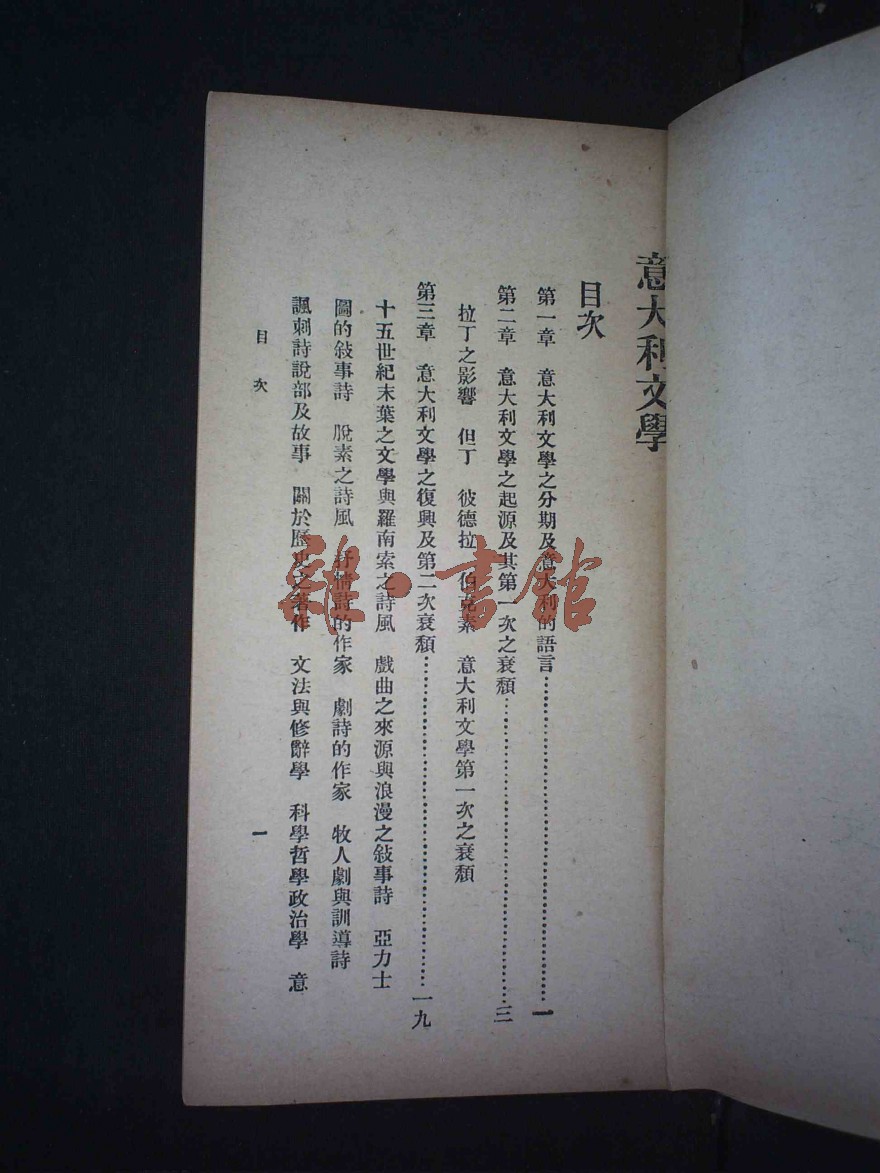 意大利文學
目次
第一章　意大利文學之分期及意大利的語言…………一
第二章　意大利文學之起源及其第一次之衰頹…………三
拉丁之影響　但丁　彼德拉　伯克素　意大利文學第一次之衰頹
第三章　意大利文學之復興及第二次衰頹…………一九
十五世紀末葉之文學與羅南索之詩風　戲曲之來源與浪漫之敍事詩　亞力士
圖的敍事詩　脫素之詩風　抒情詩的作家　劇詩的作家　牧人劇與訓導詩
諷刺詩說部及故事　關於歷史之著作　文法與修辭學　科學哲學政治學　意
目次
一
雜·書館